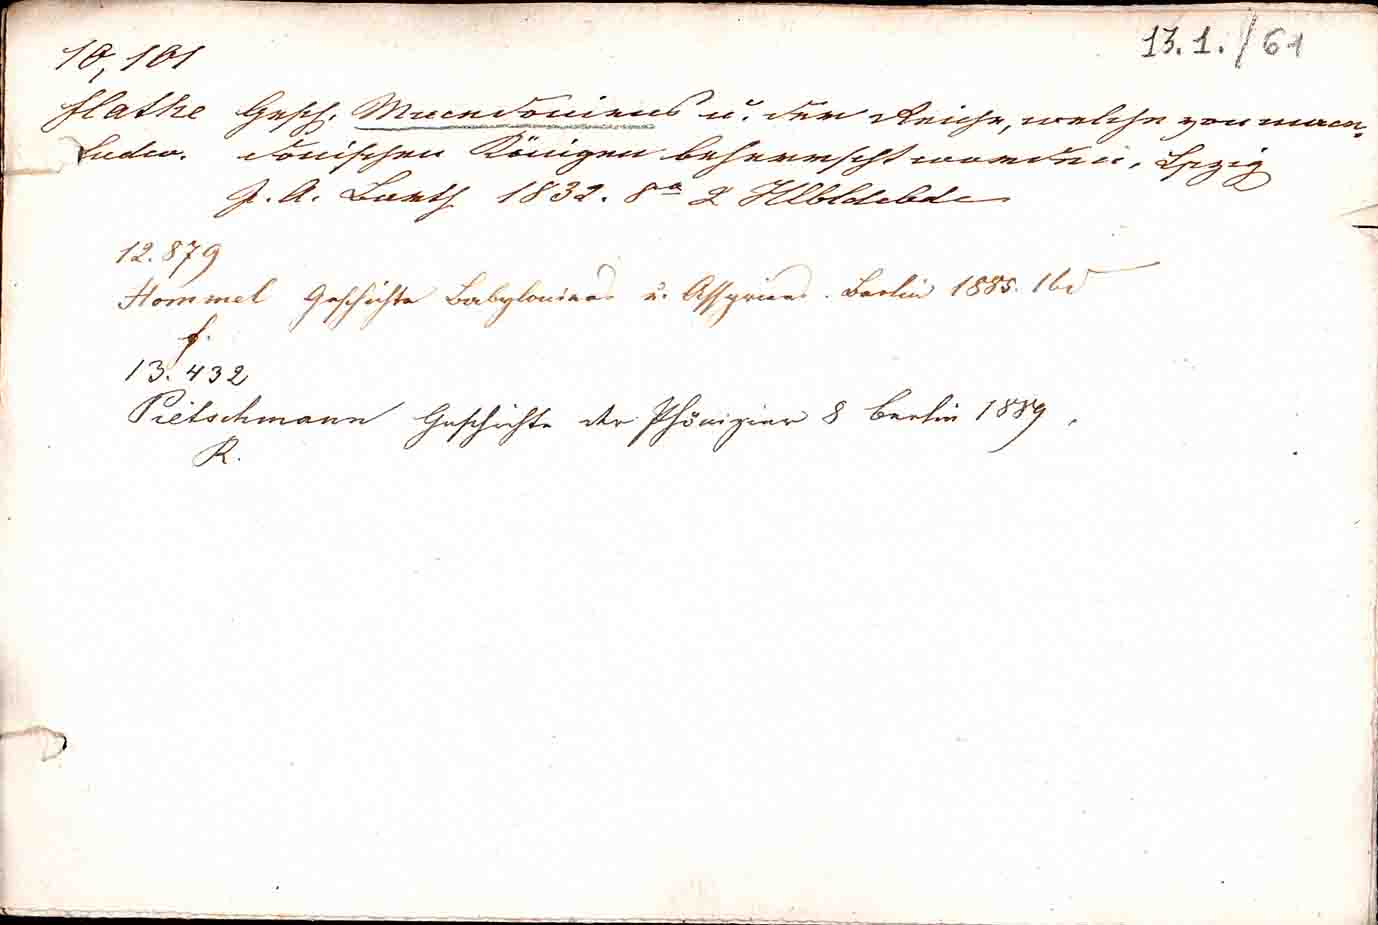 13.1./61
10,101
Flathe Gesch. Macedoniens u. der Reiche, welche von mace-
Ludw. donischen Königen beherrscht worden, Lpzig
J. A. Barth 1832. 8° 2 Hlbldrbde
12.879
Hommel Geschichte Babyloniens u. Assyriens. Berlin 1885. 1bd
f.
13.432
Pietschmann Geschichte der Phönizier 8 Berlin 1889.
R.